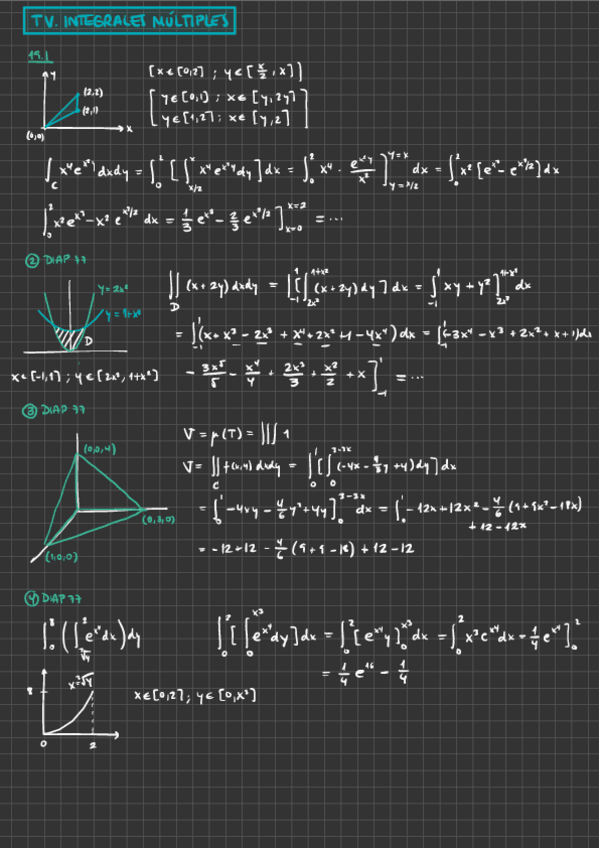 TV. INTEGRALES MÚLTIPLES
19.1
y
(2,2)
(2,1)
(0,0)
x
[x∈[0,2] ; y∈[x/2, x]]
[y∈[0,1] ; x∈[y,2y]
y∈[1,2] ; x∈[y,2]]
∫_C x⁴e^{x²y} dxdy = ∫₀² [∫_{x/2}^x x⁴e^{x²y}dy] dx = ∫₀² x⁴ · e^{x²y}/x² ]_{y=x/2}^{y=x} dx = ∫₀² x² [e^{x³} - e^{x³/2}] dx
∫₀² x²e^{x³} - x² e^{x³/2} dx = 1/3 e^{x³} - 2/3 e^{x³/2} ]_{x=0}^{x=2} = ...
② DIAP 77
y=2x²
y=1+x²
D
x∈[-1,1] ; y∈[2x², 1+x²]
∬_D (x+2y) dxdy = ∫_{-1}^1 [∫_{2x²}^{1+x²} (x+2y) dy] dx = ∫_{-1}^1 xy + y² ]_{2x²}^{1+x²} dx
= ∫_{-1}^1 (x + x³ - 2x³ + x⁴ + 2x² + 1 - 4x⁴) dx = ∫_{-1}^1 (-3x⁴ - x³ + 2x² + x + 1) dx
- 3x⁵/5 - x⁴/4 + 2x³/3 + x²/2 + x ]_{-1}^1 = ...
③ DIAP 77
(0,0,4)
(0,3,0)
(1,0,0)
V = μ(T) = ∭ 1
V = ∬_C f(x,y) dxdy = ∫₀¹ [∫₀^{3-3x} (-4x - 4/3 y + 4) dy] dx
= ∫₀¹ -4xy - 4/6 y² + 4y ]₀^{3-3x} dx = ∫₀¹ -12x + 12x² - 4/6 (9 + 9x² - 18x)
+ 12 - 12x
= -12 + 12 - 4/6 (9 + 9 - 18) + 12 - 12
④ DIAP 77
∫₀⁸ (∫_{∛y}² e^{x⁴} dx) dy
∫₀² [∫₀^{x³} e^{x⁴} dy] dx = ∫₀² [e^{x⁴} y]₀^{x³} dx = ∫₀² x³ e^{x⁴} dx = 1/4 e^{x⁴} ]₀²
= 1/4 e¹⁶ - 1/4
x=∛y
8
0
2
x∈[0,2] ; y∈[0,x³]